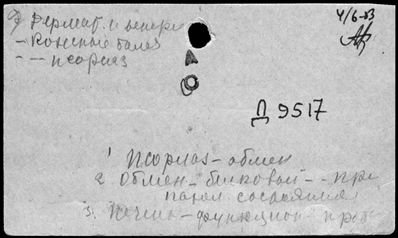 Дермат. и венер
- Кожные болез
- -- псориаз
4/6-83
Д 9517
1 Псориаз - обмен
2 Обмен - белковый -- при
патол. состояния
3. Печень - функцион. проб